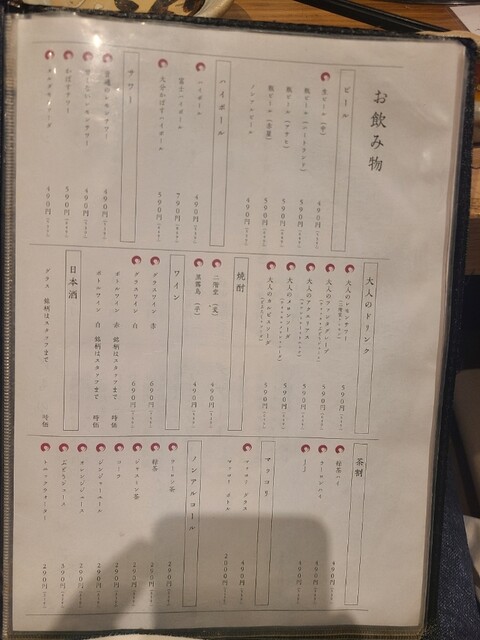 お飲み物
ビール
生ビール（中） 490円
瓶ビール（ハートランド） 590円
瓶ビール（アサヒ） 590円
瓶ビール（赤星） 590円
ノンアルビール 490円
ハイボール
ハイボール 490円
富士ハイボール 790円
大分かぼすハイボール 590円
サワー
レモンサワー 490円
レモンサワー 490円
かぼすサワー 590円
490円
大人のドリンク
大人のレモンサワー 590円
大人のファンタグレープ 590円
大人のアクエリアス 590円
大人のメロンソーダ 590円
大人のカルピスソーダ 590円
焼酎
二階堂（麦） 490円
黒霧島（芋） 490円
ワイン
グラスワイン 赤 690円
グラスワイン 白 690円
ボトルワイン 赤 銘柄はスタッフまで 時価
ボトルワイン 白 銘柄はスタッフまで 時価
日本酒
グラス 銘柄はスタッフまで 時価
茶割
緑茶ハイ 490円
ウーロンハイ 490円
490円
マッコリ
マッコリ グラス 490円
マッコリ ボトル 2000円
ノンアルコール
ウーロン茶 290円
緑茶 290円
ジャスミン茶 290円
コーラ 290円
ジンジャーエール 290円
オレンジジュース 290円
ぶどうジュース 390円
トニックウォーター 290円